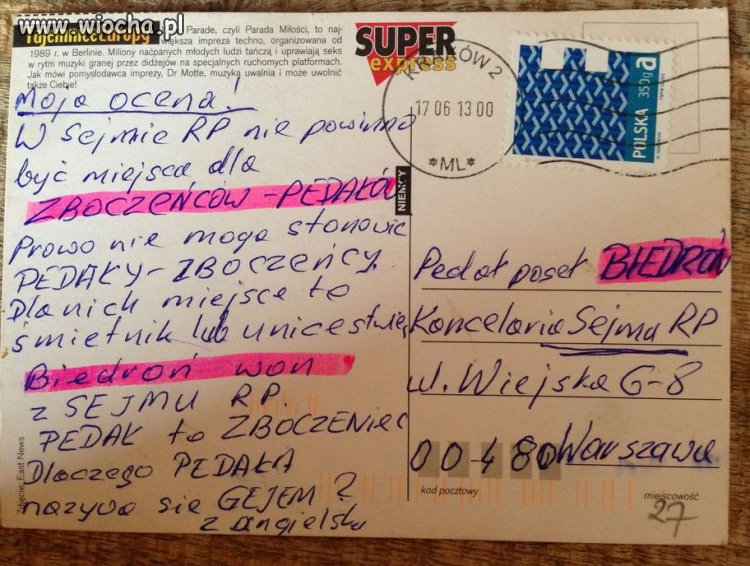 www.wiocha.pl
Tajemnice Europy
Parade, czyli Parada Miłości, to naj-
większa impreza techno, organizowana od
1989 r. w Berlinie. Miliony naćpanych młodych ludzi tańczą i uprawiają seks
w rytm muzyki granej przez didżejów na specjalnych ruchomych platformach.
Jak mówi pomysłodawca imprezy, Dr Motte, muzyka uwalnia i może uwolnić
także Ciebie!
SUPER
express
KRAKÓW 2
17 06 13 00
*ML*
a
350g
POLSKA
Moja ocena!
W Sejmie RP nie powinno
być miejsca dla
ZBOCZEŃCÓW-PEDAŁÓW
Prawo nie mogą stanowić
PEDAŁY-ZBOCZEŃCY.
Dla nich miejsce to
śmietnik lub unicestwie
Biedroń won
z SEJMU RP.
PEDAŁ to ZBOCZENIEC
Dlaczego PEDAŁA
nazywa się GEJEM?
z angielsk
NIEMCY
Zdjęcie: East News
Pedał poseł BIEDROŃ
Kancelaria Sejmu RP
ul. Wiejska 6-8
00-480 Warszawa
kod pocztowy
miejscowość
27